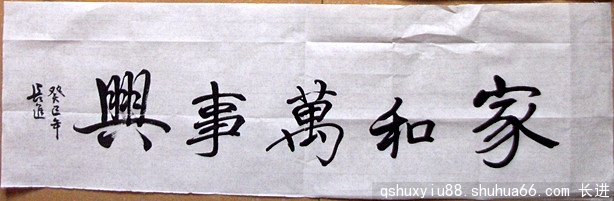 家和萬事興
癸巳年
長進
qshuxyiu88.shuhua66.com 长进